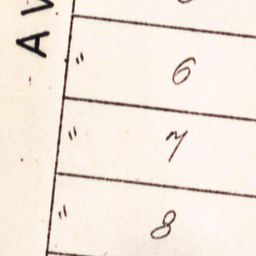 AV
" 6
" 7
" 8